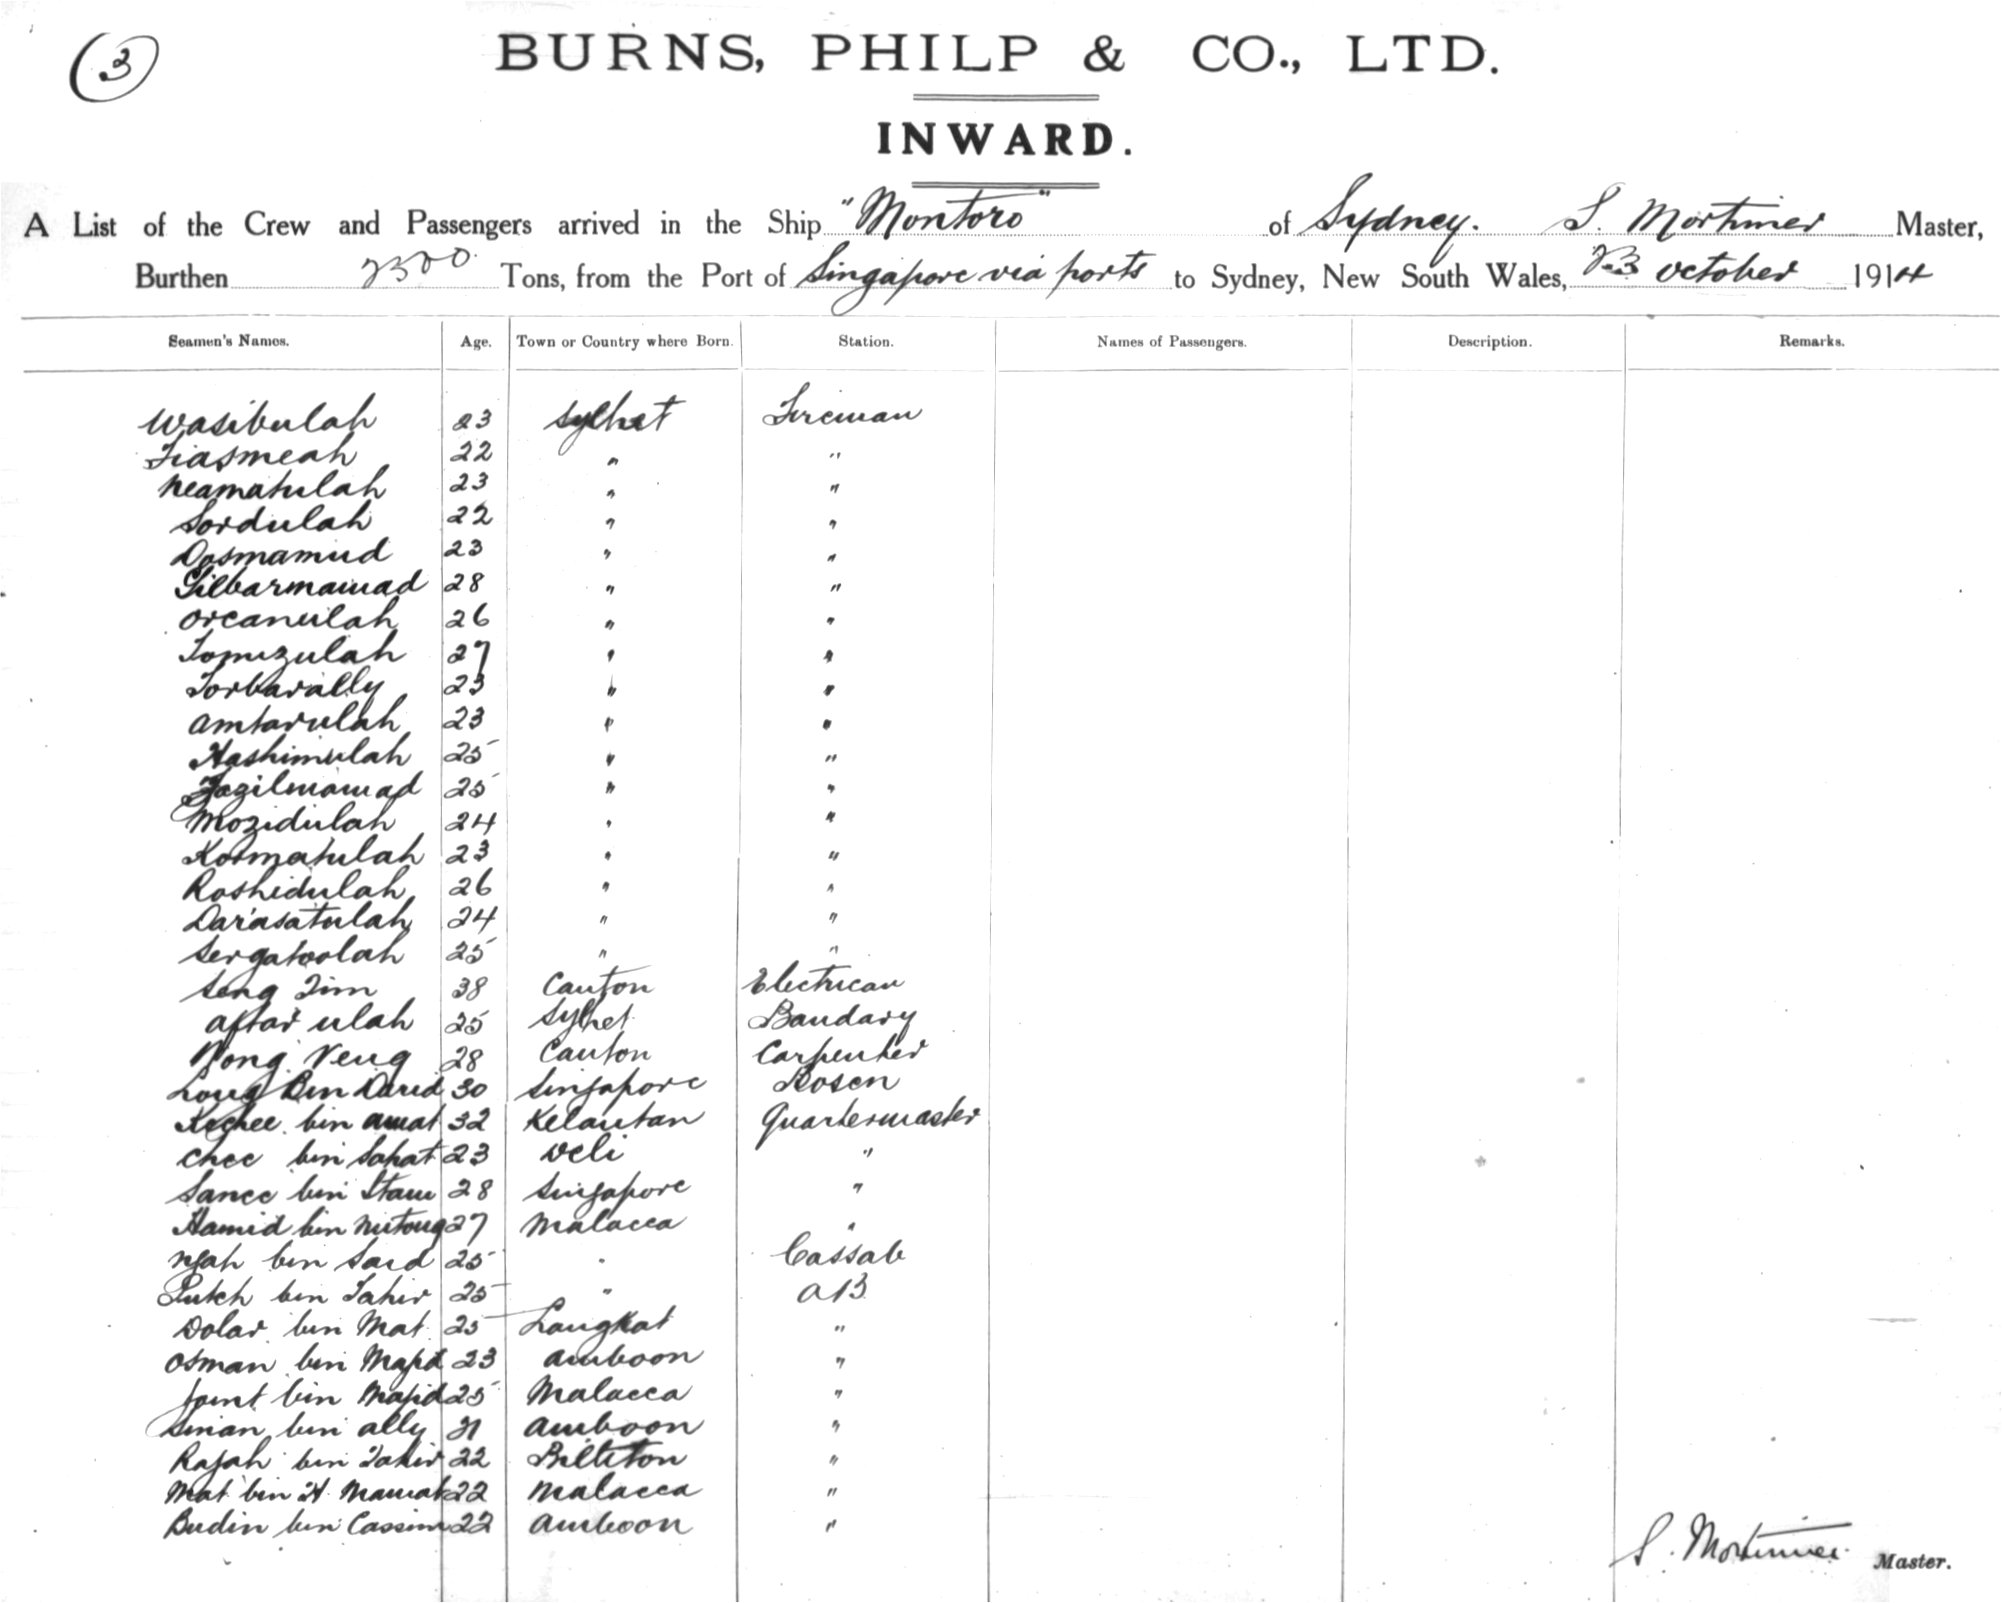 3
BURNS, PHILP & CO., LTD.
INWARD.
A List of the Crew and Passengers arrived in the Ship "Montoro" of Sydney. S. Mortimer Master,
Burthen Tons, from the Port of Singapore via ports to Sydney, New South Wales, 23 October 1914
Seamen's Names. Age. Town or Country where Born. Station. Names of Passengers. Description. Remarks.
Wasibulah 23 Sylhet Fireman
Fiasmeah 22 " "
Neamatulah 23 " "
Sordulah 22 " "
Dosmamud 23 " "
Gilbarmamad 28 " "
Orcanulah 26 " "
Tomizulah 27 " "
Torbarally 23 " "
Amtarulah 23 " "
Hashimulah 25 " "
Fazilmamad 25 " "
Mozidulah 24 " "
Kormatulah 23 " "
Roshidulah 26 " "
Darasatulah 24 " "
Sergatoolah 25 " "
Seng Tim 38 Canton Electrican
Aftar ulah 25 Sylhet Bandary
Wong Veng 28 Canton Carpenter
Long Bin Darid 30 Singapore Bosen
bin Amat 32 Kelantan Quartermaster
Chee bin Sahat 23 Deli "
Sanee bin Itam 28 Singapore "
Hamid bin 27 Malacca "
Ngah bin Said 25 " Cassab
Putch bin Tahir 25 " AB
Dolar bin Mat 25 Langkat "
Osman bin Majid 23 Amboon "
bin Majid 25 Malacca "
Sinan bin Ally 21 Amboon "
Rajah bin Tahir 22 Billiton "
Mat bin H. Mamat 22 Malacca "
Budin bin Cassim 22 Amboon "
S. Mortimer Master.